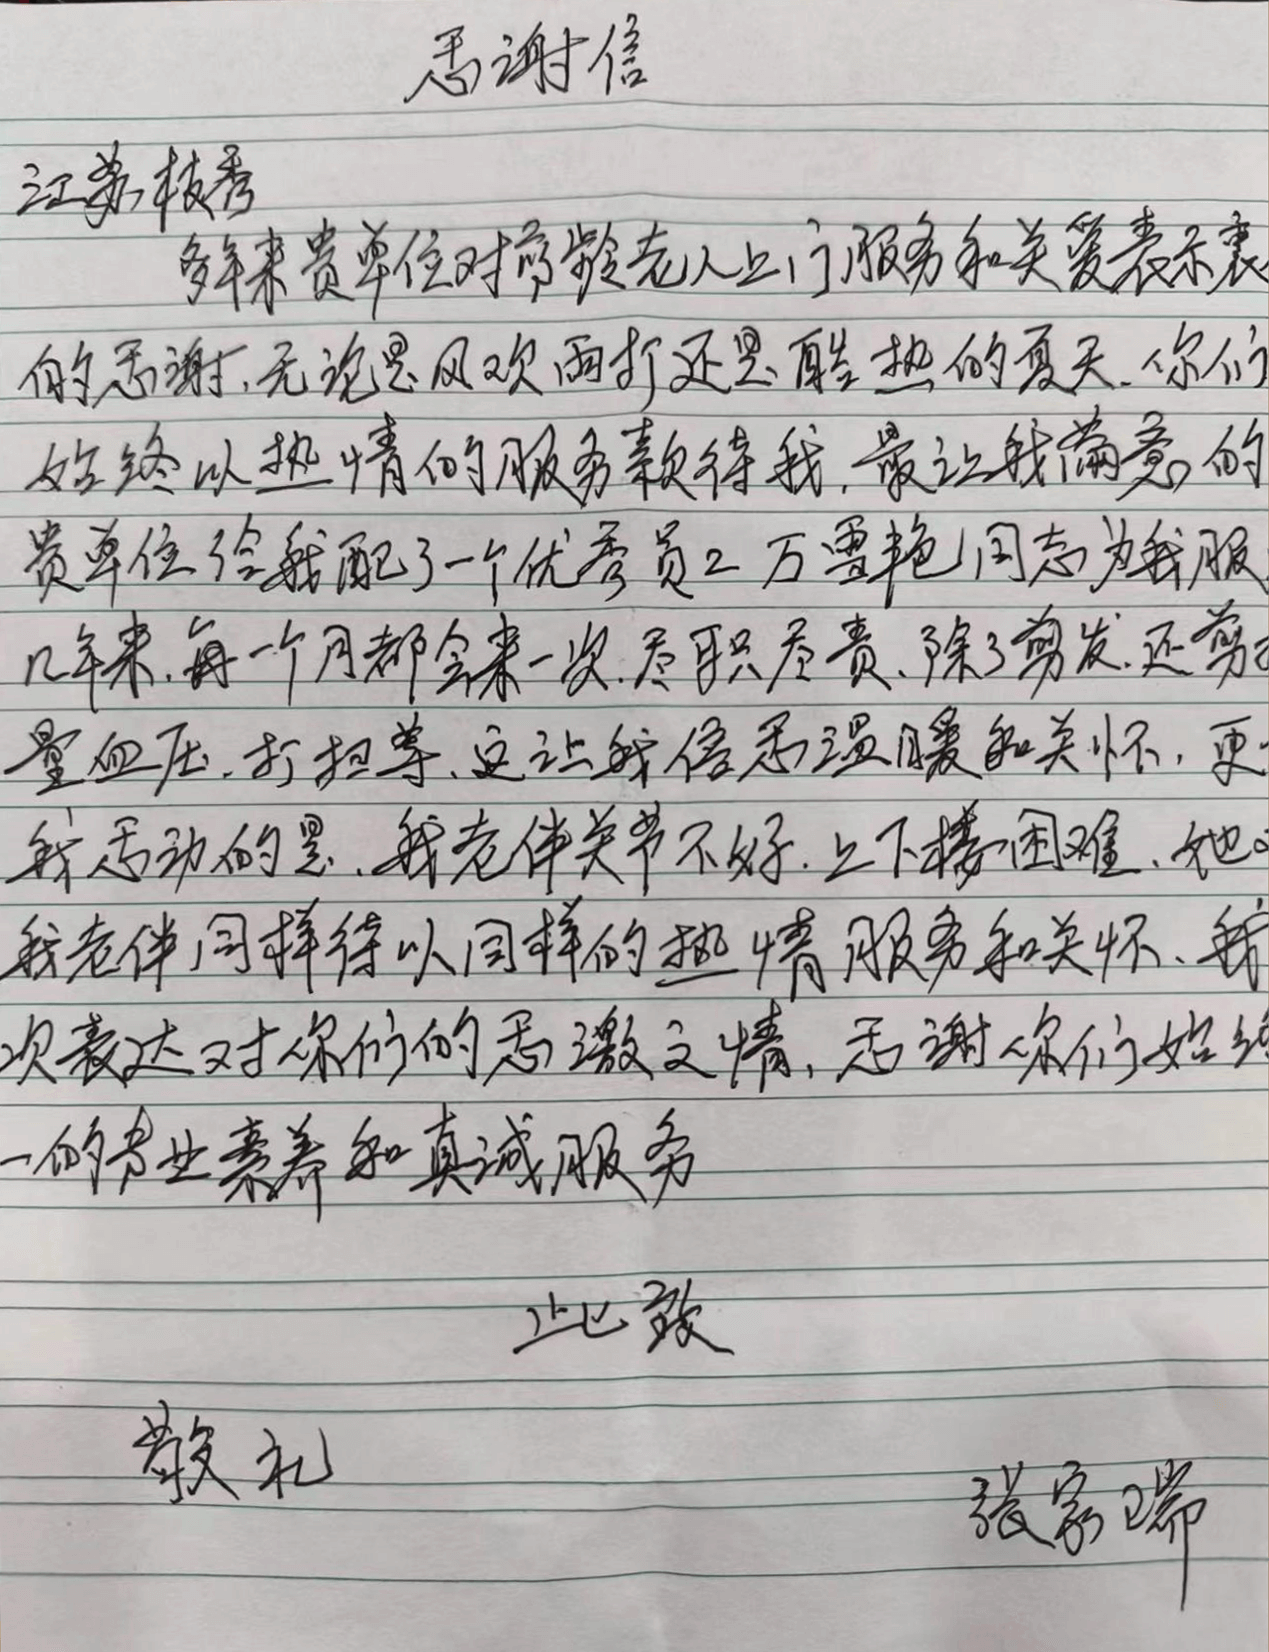 感谢信
江苏枝秀
多年来贵单位对高龄老人上门服务和关爱表示衷
的感谢,无论是风吹雨打还是酷热的夏天、你们
始终以热情的服务款待我,最让我满意的
贵单位给我配了一个优秀员工万雪艳同志为我服
几年来,每一个月都会来一次.尽职尽责、除了剪发.还剪
量血压.打扫等、这让我倍感温暖和关怀,更
我感动的是、我老伴关节不好.上下楼困难、她
我老伴同样待以同样的热情服务和关怀、我
次表达对你们的感激之情,感谢你们始终
一的专业素养和真诚服务
此致
敬礼
张家瑞